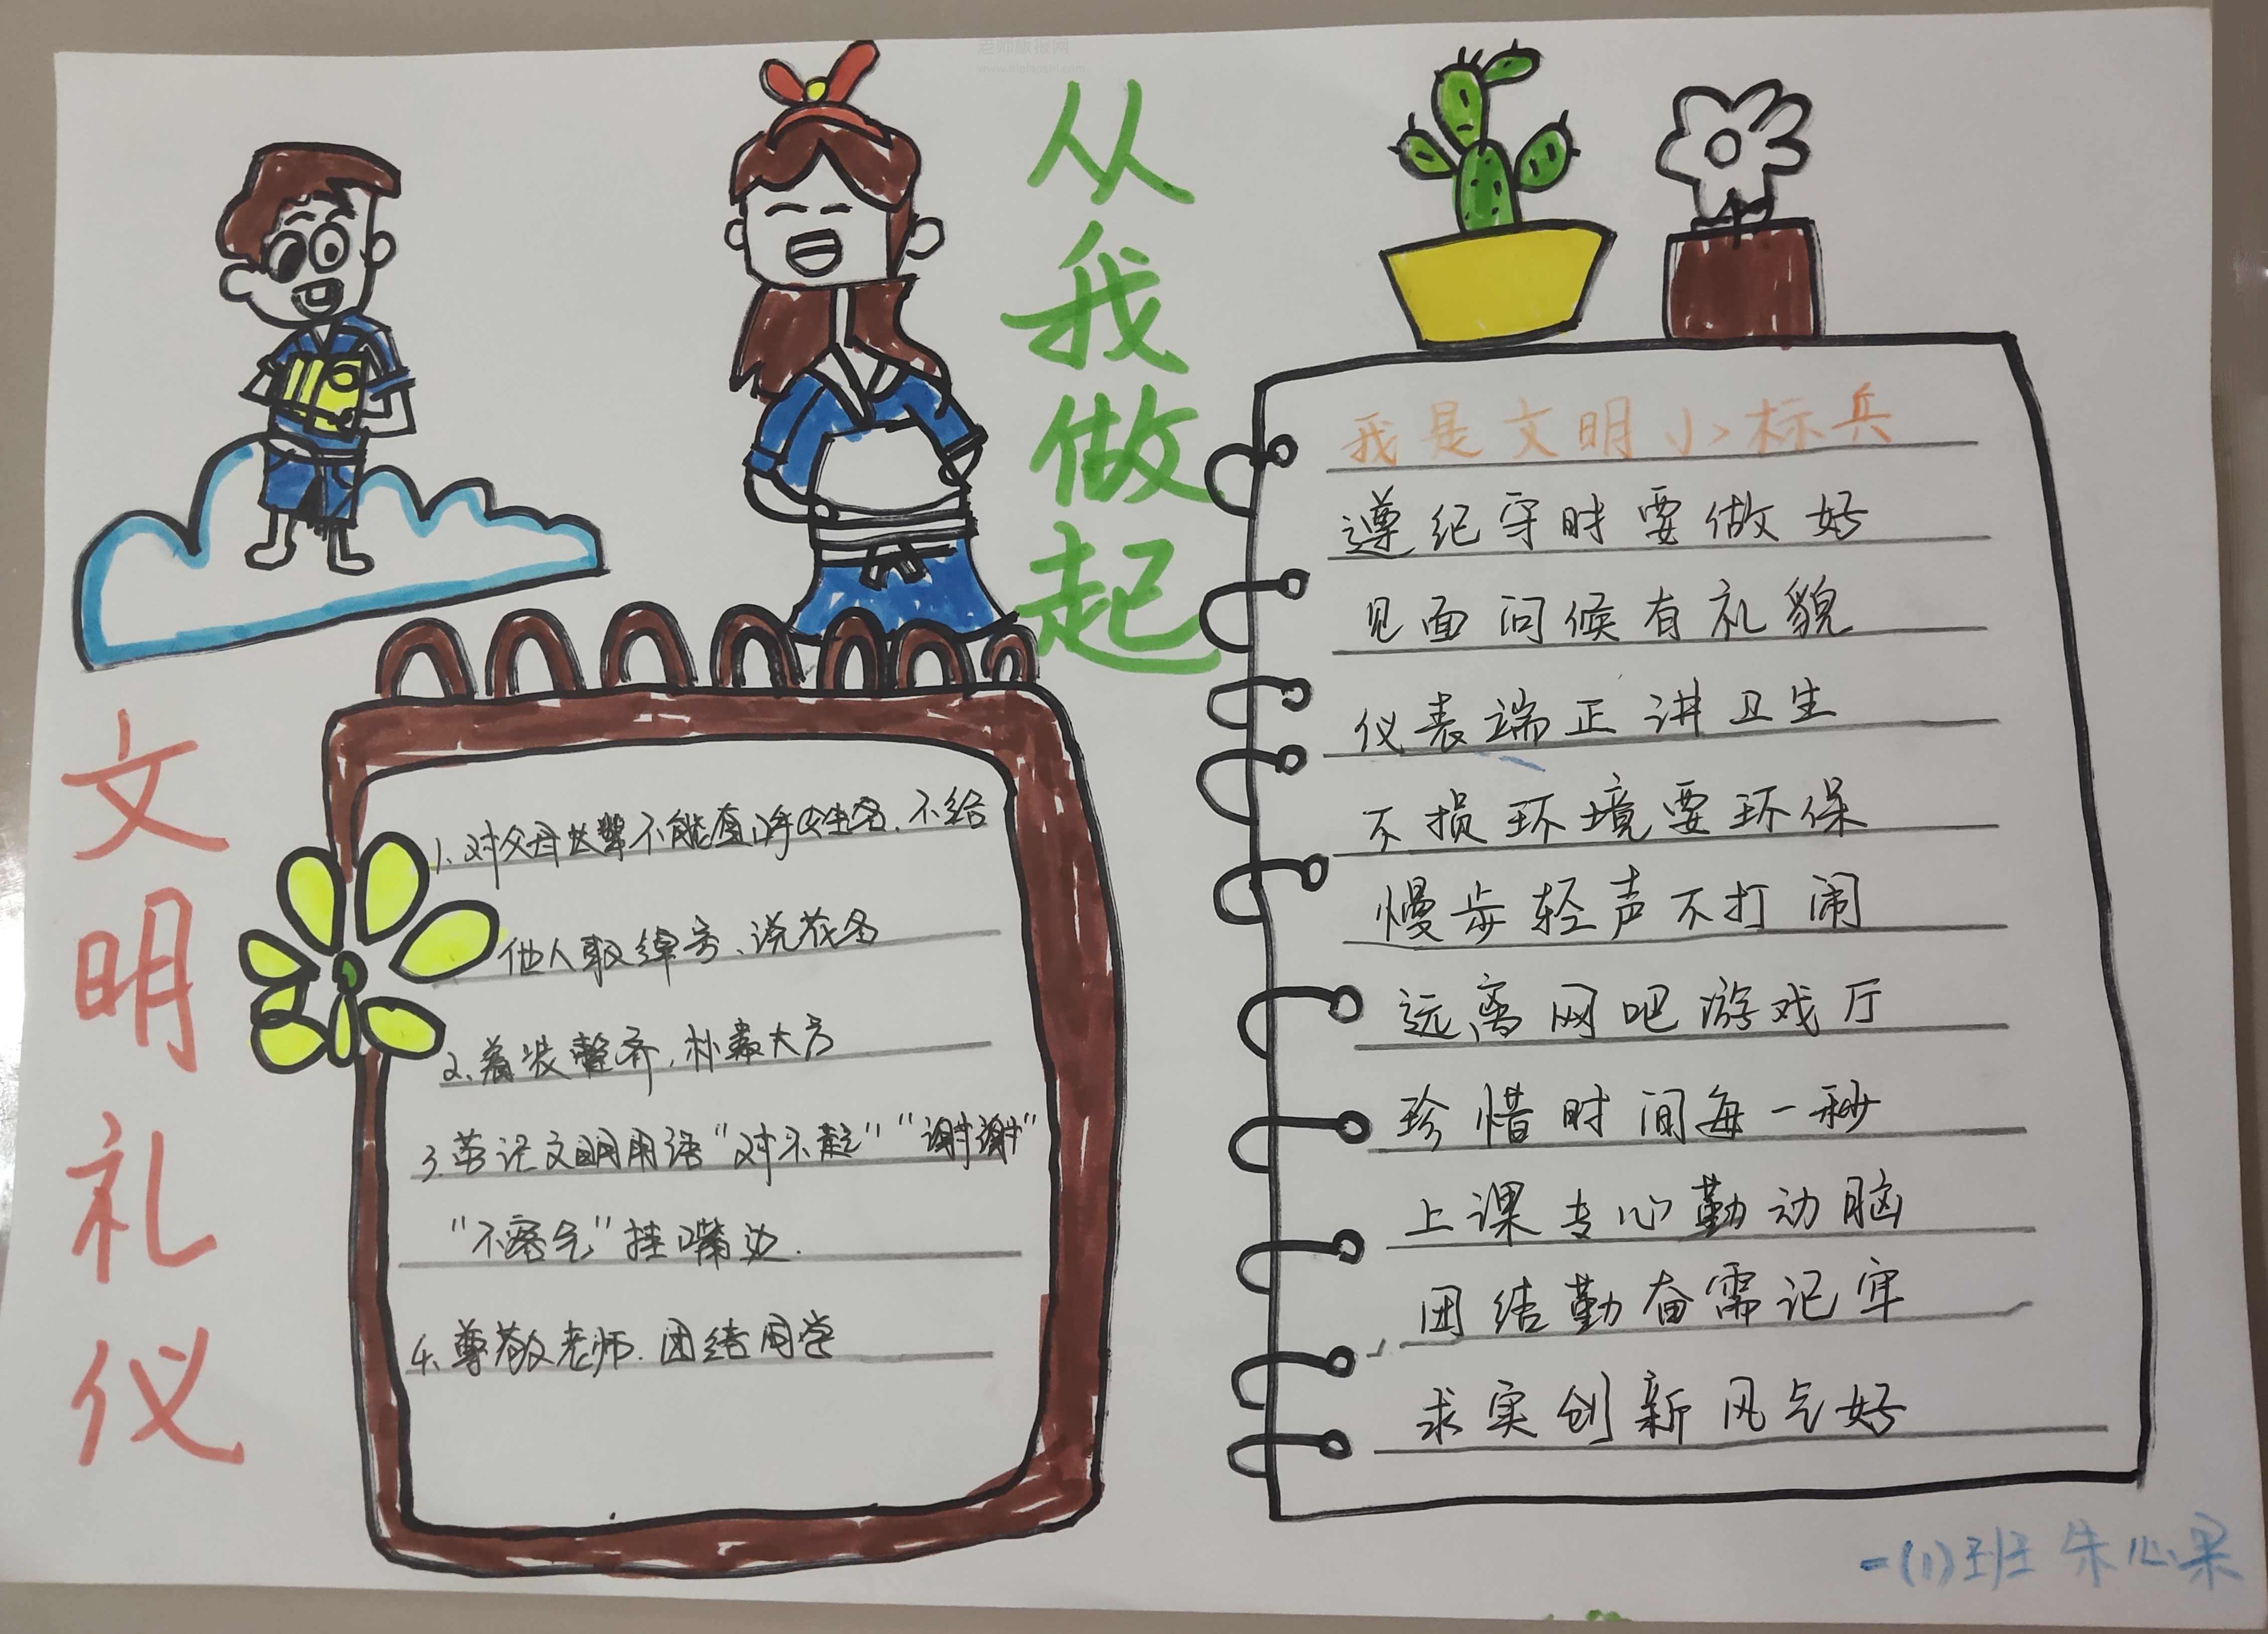 老师板报网
从我做起
文明礼仪
1、对父母长辈不能直呼其姓名、不给
他人取绰号、说花名
2、着装整齐,朴素大方
3、劳记文明用语“对不起”“谢谢”
“不客气”挂嘴边.
4、尊敬老师.团结同学
我是文明小标兵
遵纪守时要做好
见面问候有礼貌
仪表端正讲卫生
不损环境要环保
慢步轻声不打闹
远离网吧游戏厅
珍惜时间每一秒
上课专心勤动脑
团结勤奋需记牢
求实创新风气好
一(1)班 朱心果